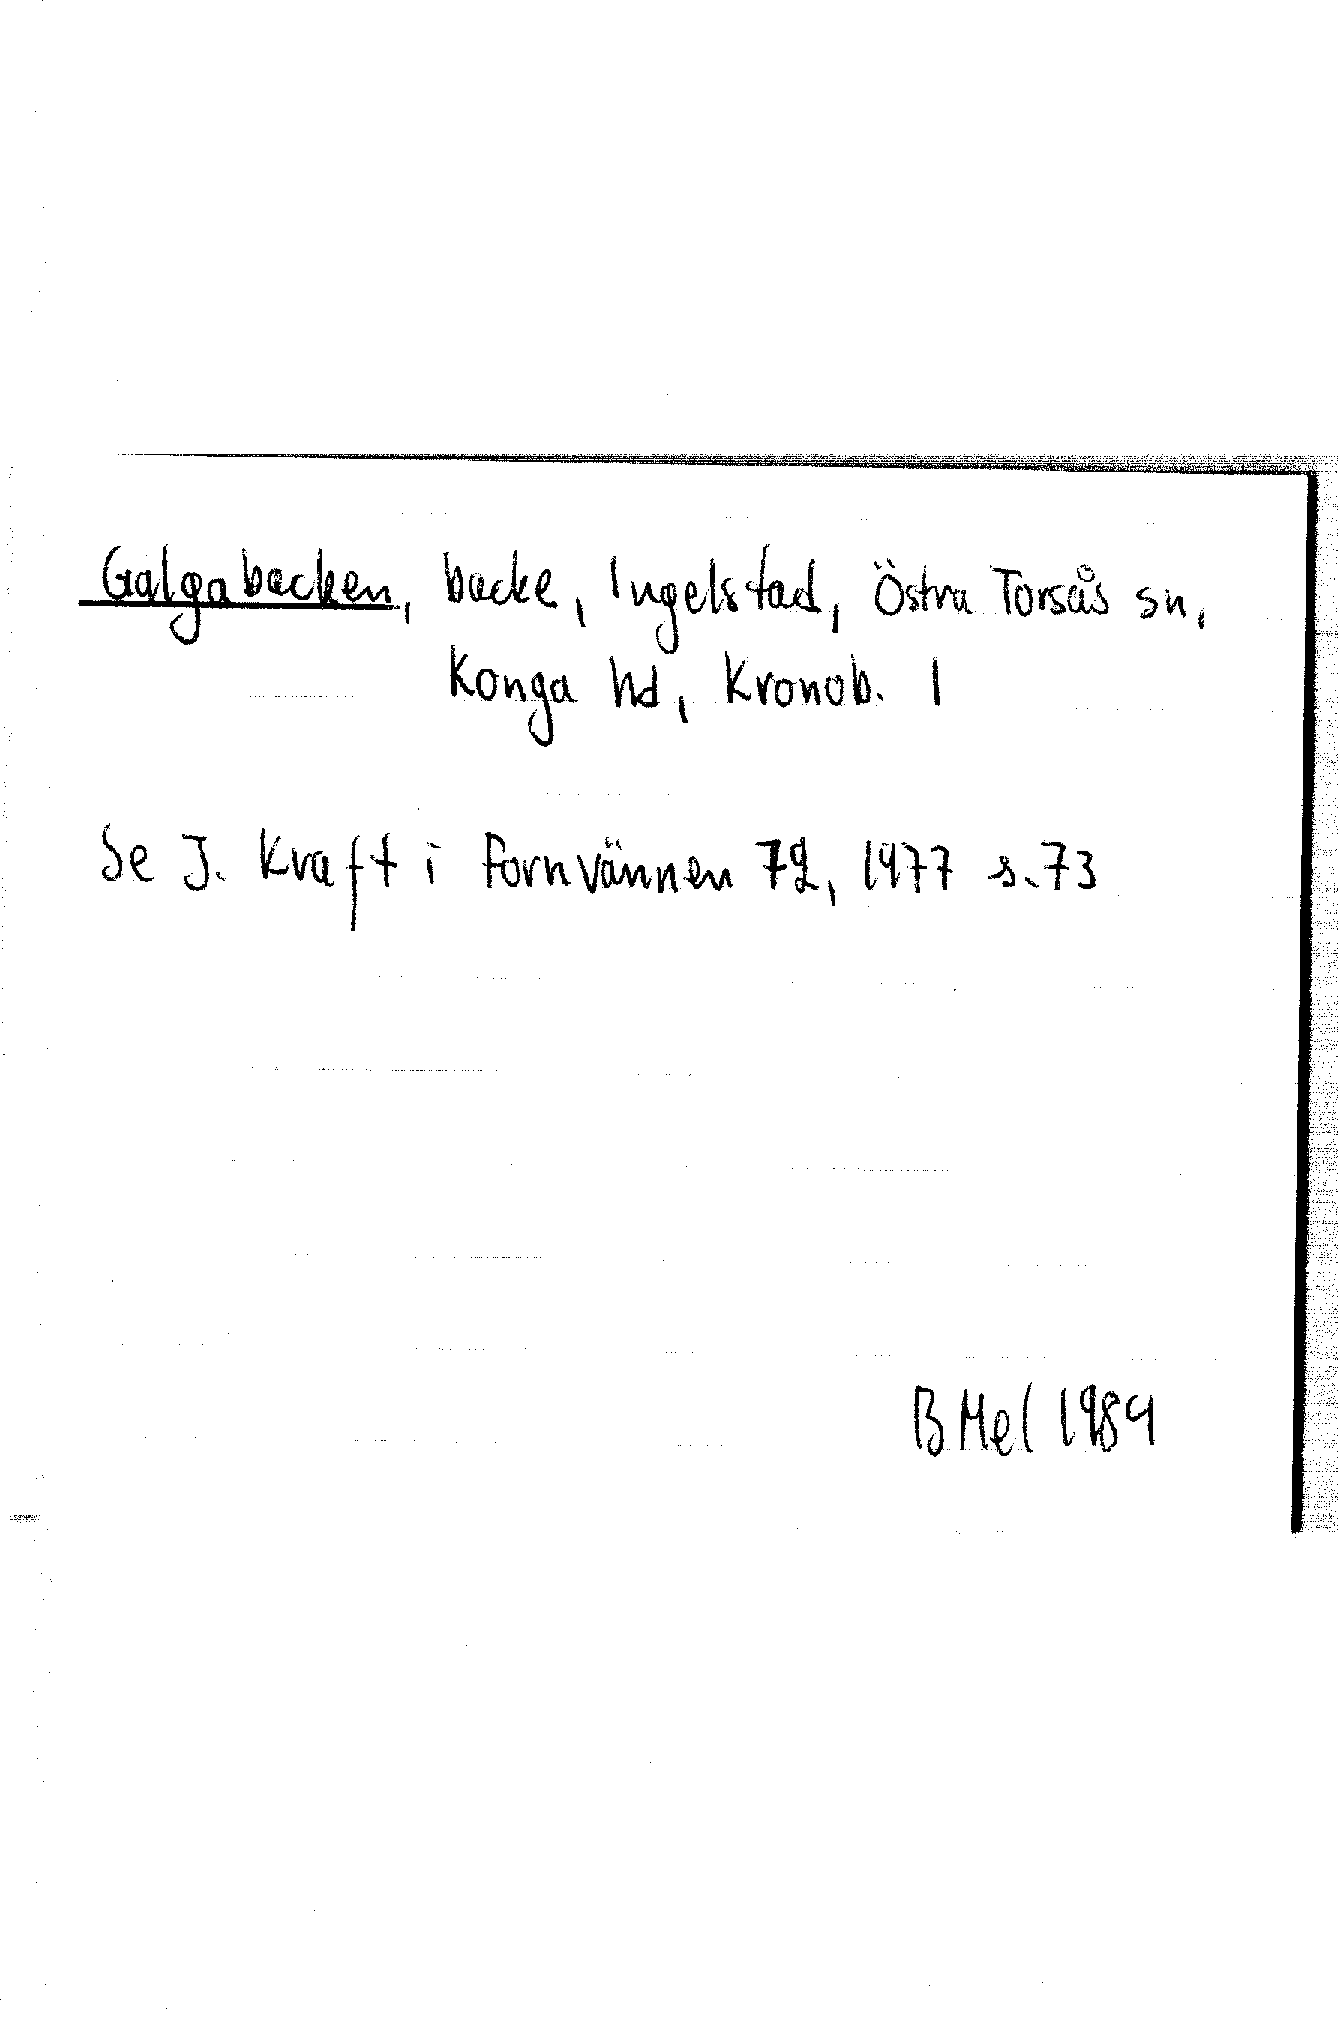 Galgabacken, backe, Ingelstad, Östra Torsås sn,
Konga hd, Kronob. l
Se J. Kraft i Fornvännen 72, 1977 s. 73
B Mel 1989